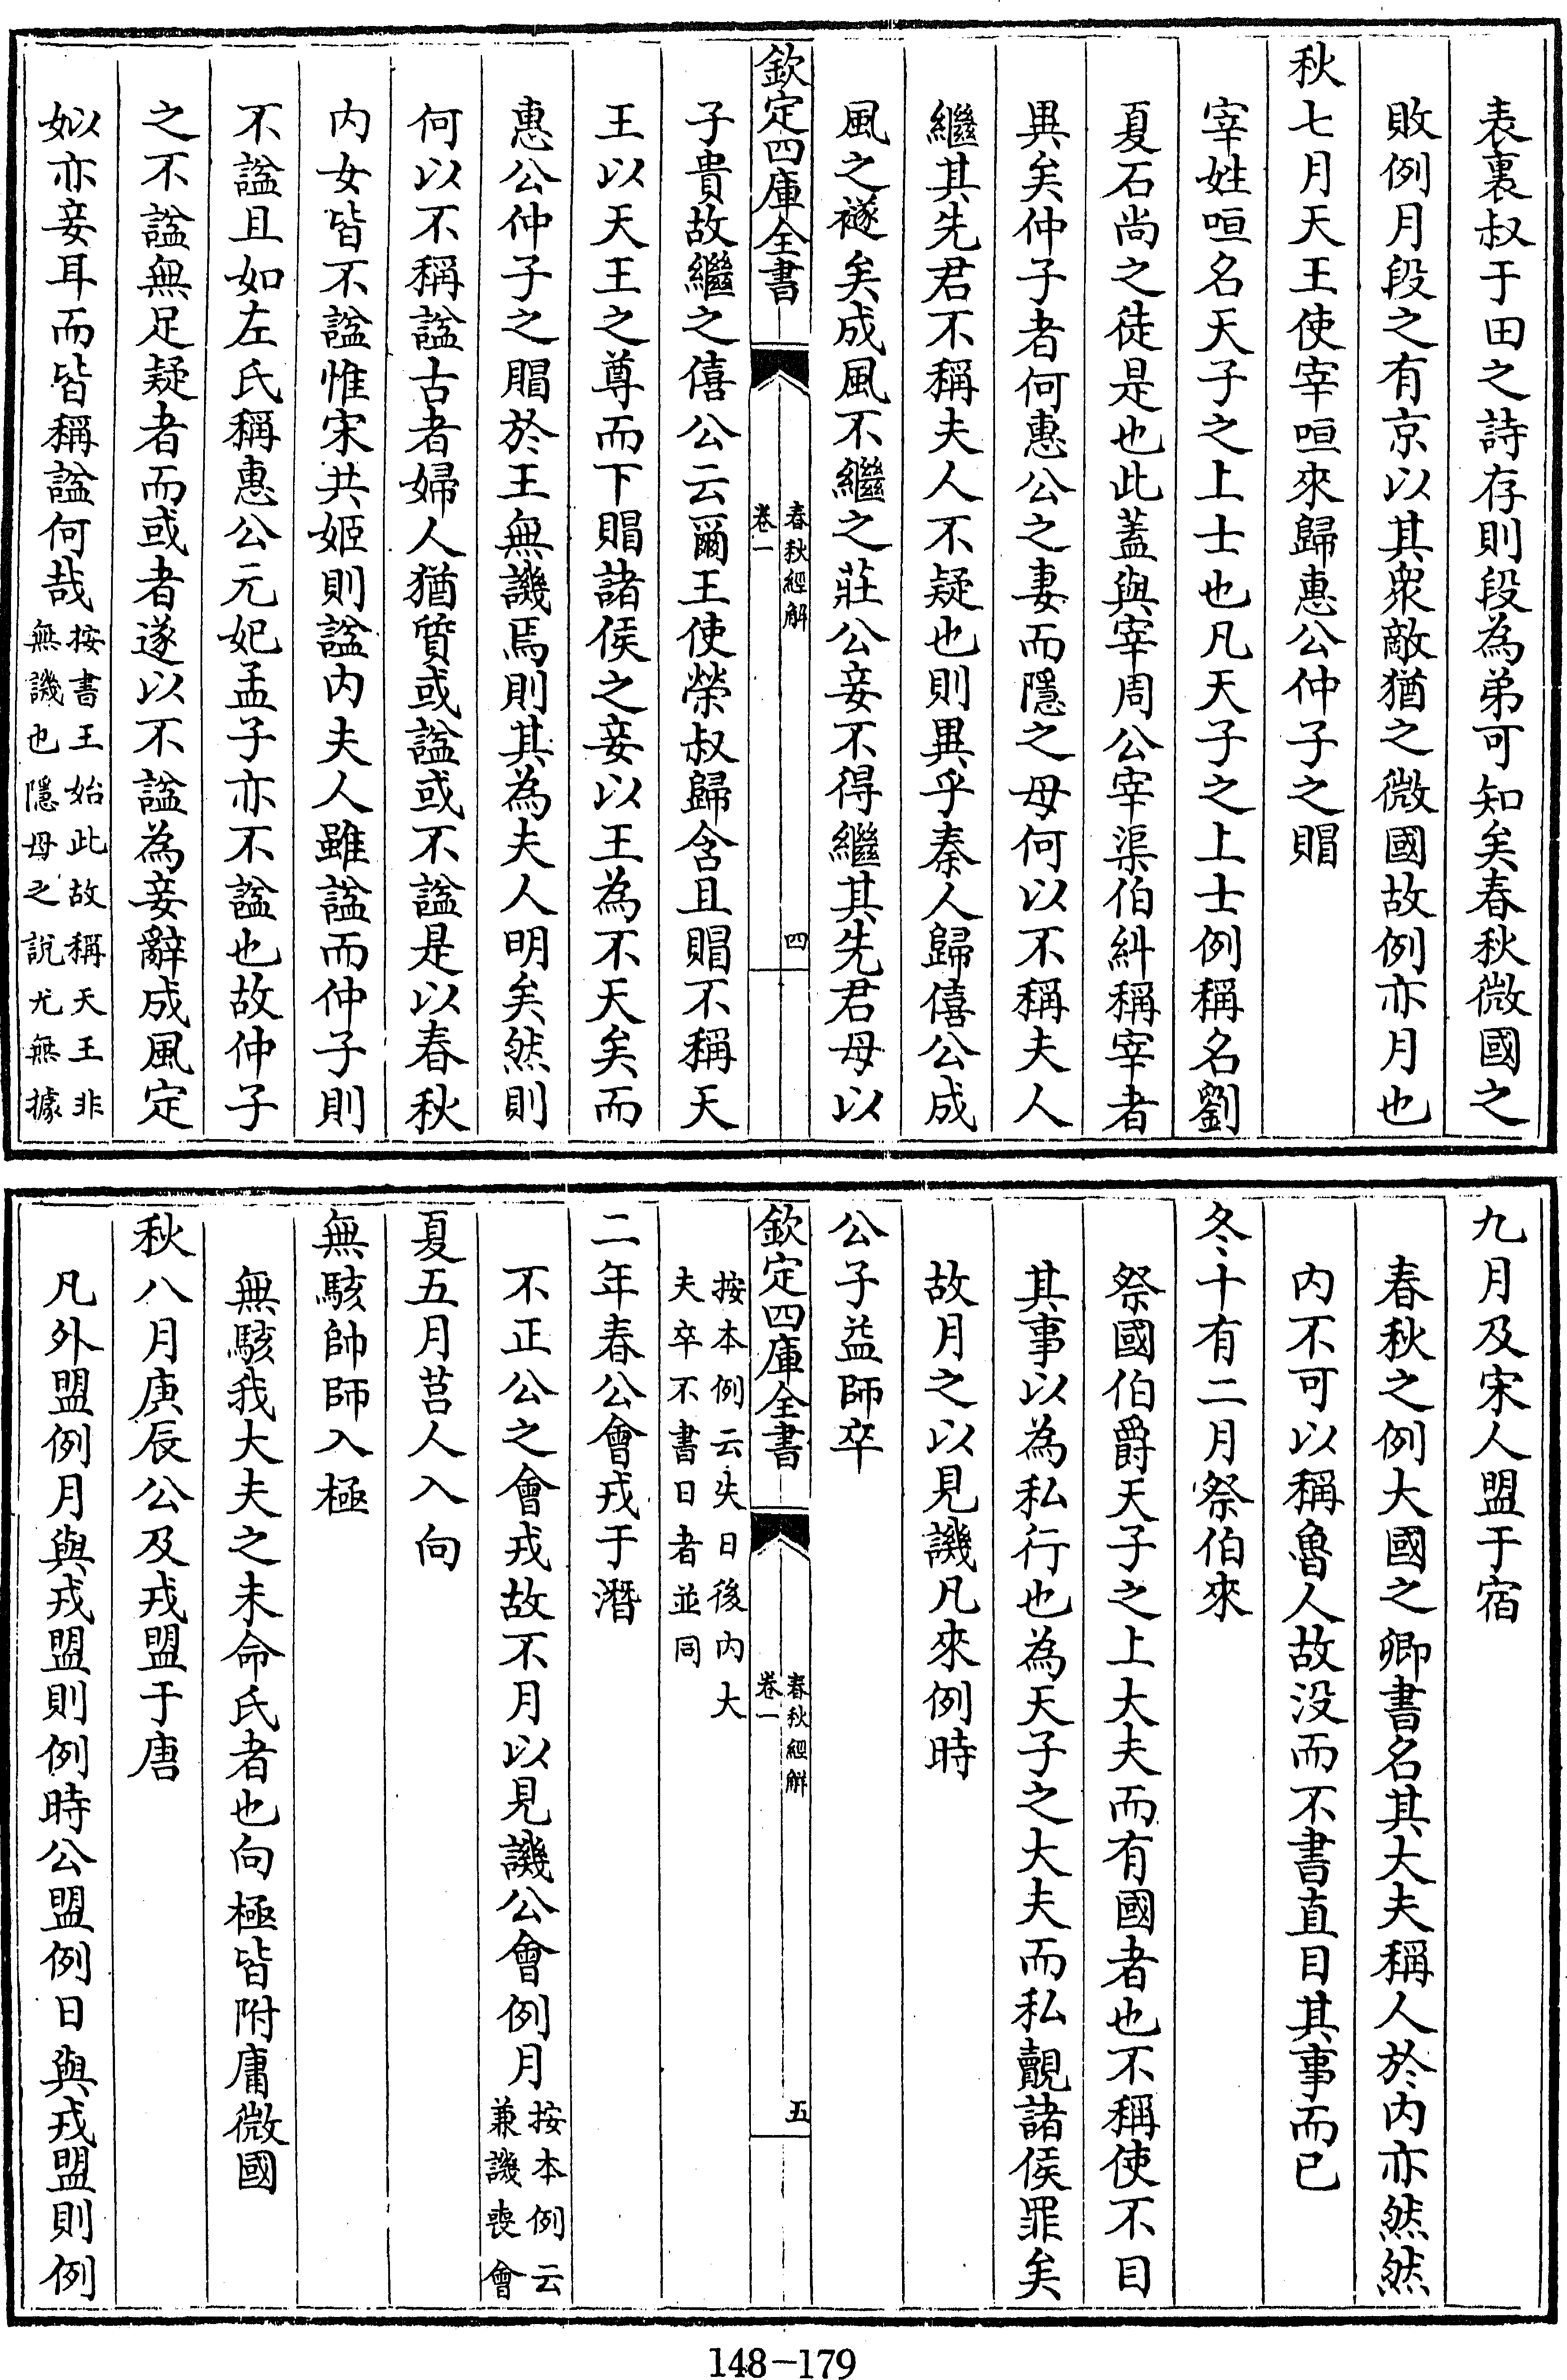 表裏叔于田之詩存則段為弟可知矣春秋微國之
敗例月段之有京以其衆敵猶之微國故例亦月也
秋七月天王使宰咺來歸惠公仲子之賵
宰姓咺名天子之上士也凡天子之上士例稱名劉
夏石尚之徒是也此蓋與宰周公宰渠伯糾稱宰者
異矣仲子者何惠公之妻而隱之母何以不稱夫人
繼其先君不稱夫人不疑也則異乎秦人歸僖公成
風之襚矣成風不繼之莊公妾不得繼其先君母以
欽定四庫全書
春秋經解
卷一
四
子貴故繼之僖公云爾王使榮叔歸含且賵不稱天
王以天王之尊而下賵諸侯之妾以王為不天矣而
惠公仲子之賵於王無譏焉則其為夫人明矣然則
何以不稱諡古者婦人猶質或諡或不諡是以春秋
内女皆不諡惟宋共姬則諡内夫人雖諡而仲子則
不諡且如左氏稱惠公元妃孟子亦不諡也故仲子
之不諡無足疑者而或者遂以不諡為妾辭成風定
姒亦妾耳而皆稱諡何哉
按書王始此故稱天王非
無譏也隱母之說尤無據
九月及宋人盟于宿
春秋之例大國之卿書名其大夫稱人於内亦然然
内不可以稱魯人故没而不書直目其事而已
冬十有二月祭伯來
祭國伯爵天子之上大夫而有國者也不稱使不目
其事以為私行也為天子之大夫而私覿諸侯罪矣
故月之以見譏凡來例時
公子益師卒
欽定四庫全書
春秋經解
卷一
五
按本例云失日後内大
夫卒不書日者並同
二年春公會戎于潛
不正公之會戎故不月以見譏公會例月
按本例云
兼譏喪會
夏五月莒人入向
無駭帥師入極
無駭我大夫之未命氏者也向極皆附庸微國
秋八月庚辰公及戎盟于唐
凡外盟例月與戎盟則例時公盟例日與戎盟則例
148-179